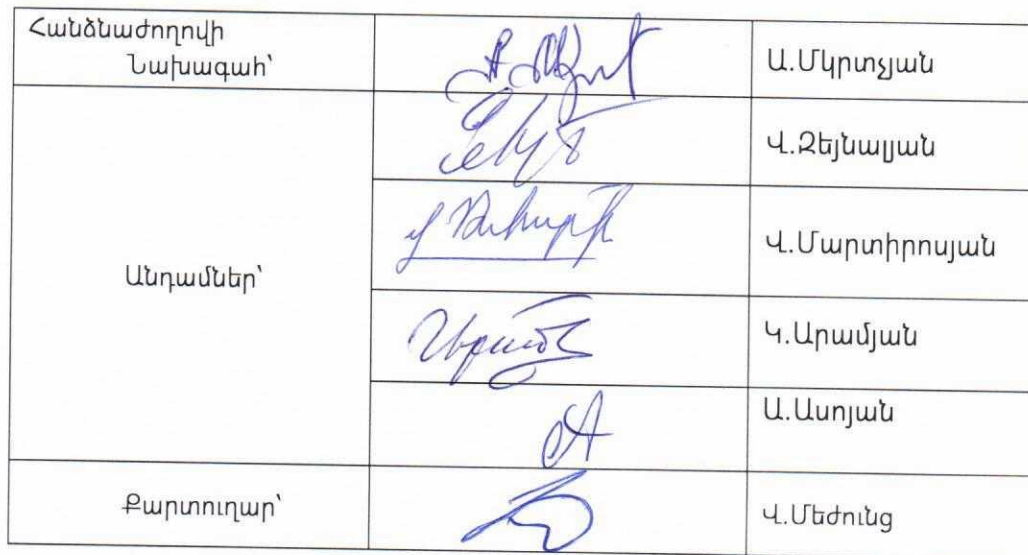 Հանձնաժողովի
Նախագահ՝
Ա.Մկրտչյան
Վ.Զեյնալյան
Անդամներ՝
Վ.Մարտիրոսյան
Կ.Արամյան
Ա.Ասոյան
Քարտուղար՝
Վ.Մեժունց